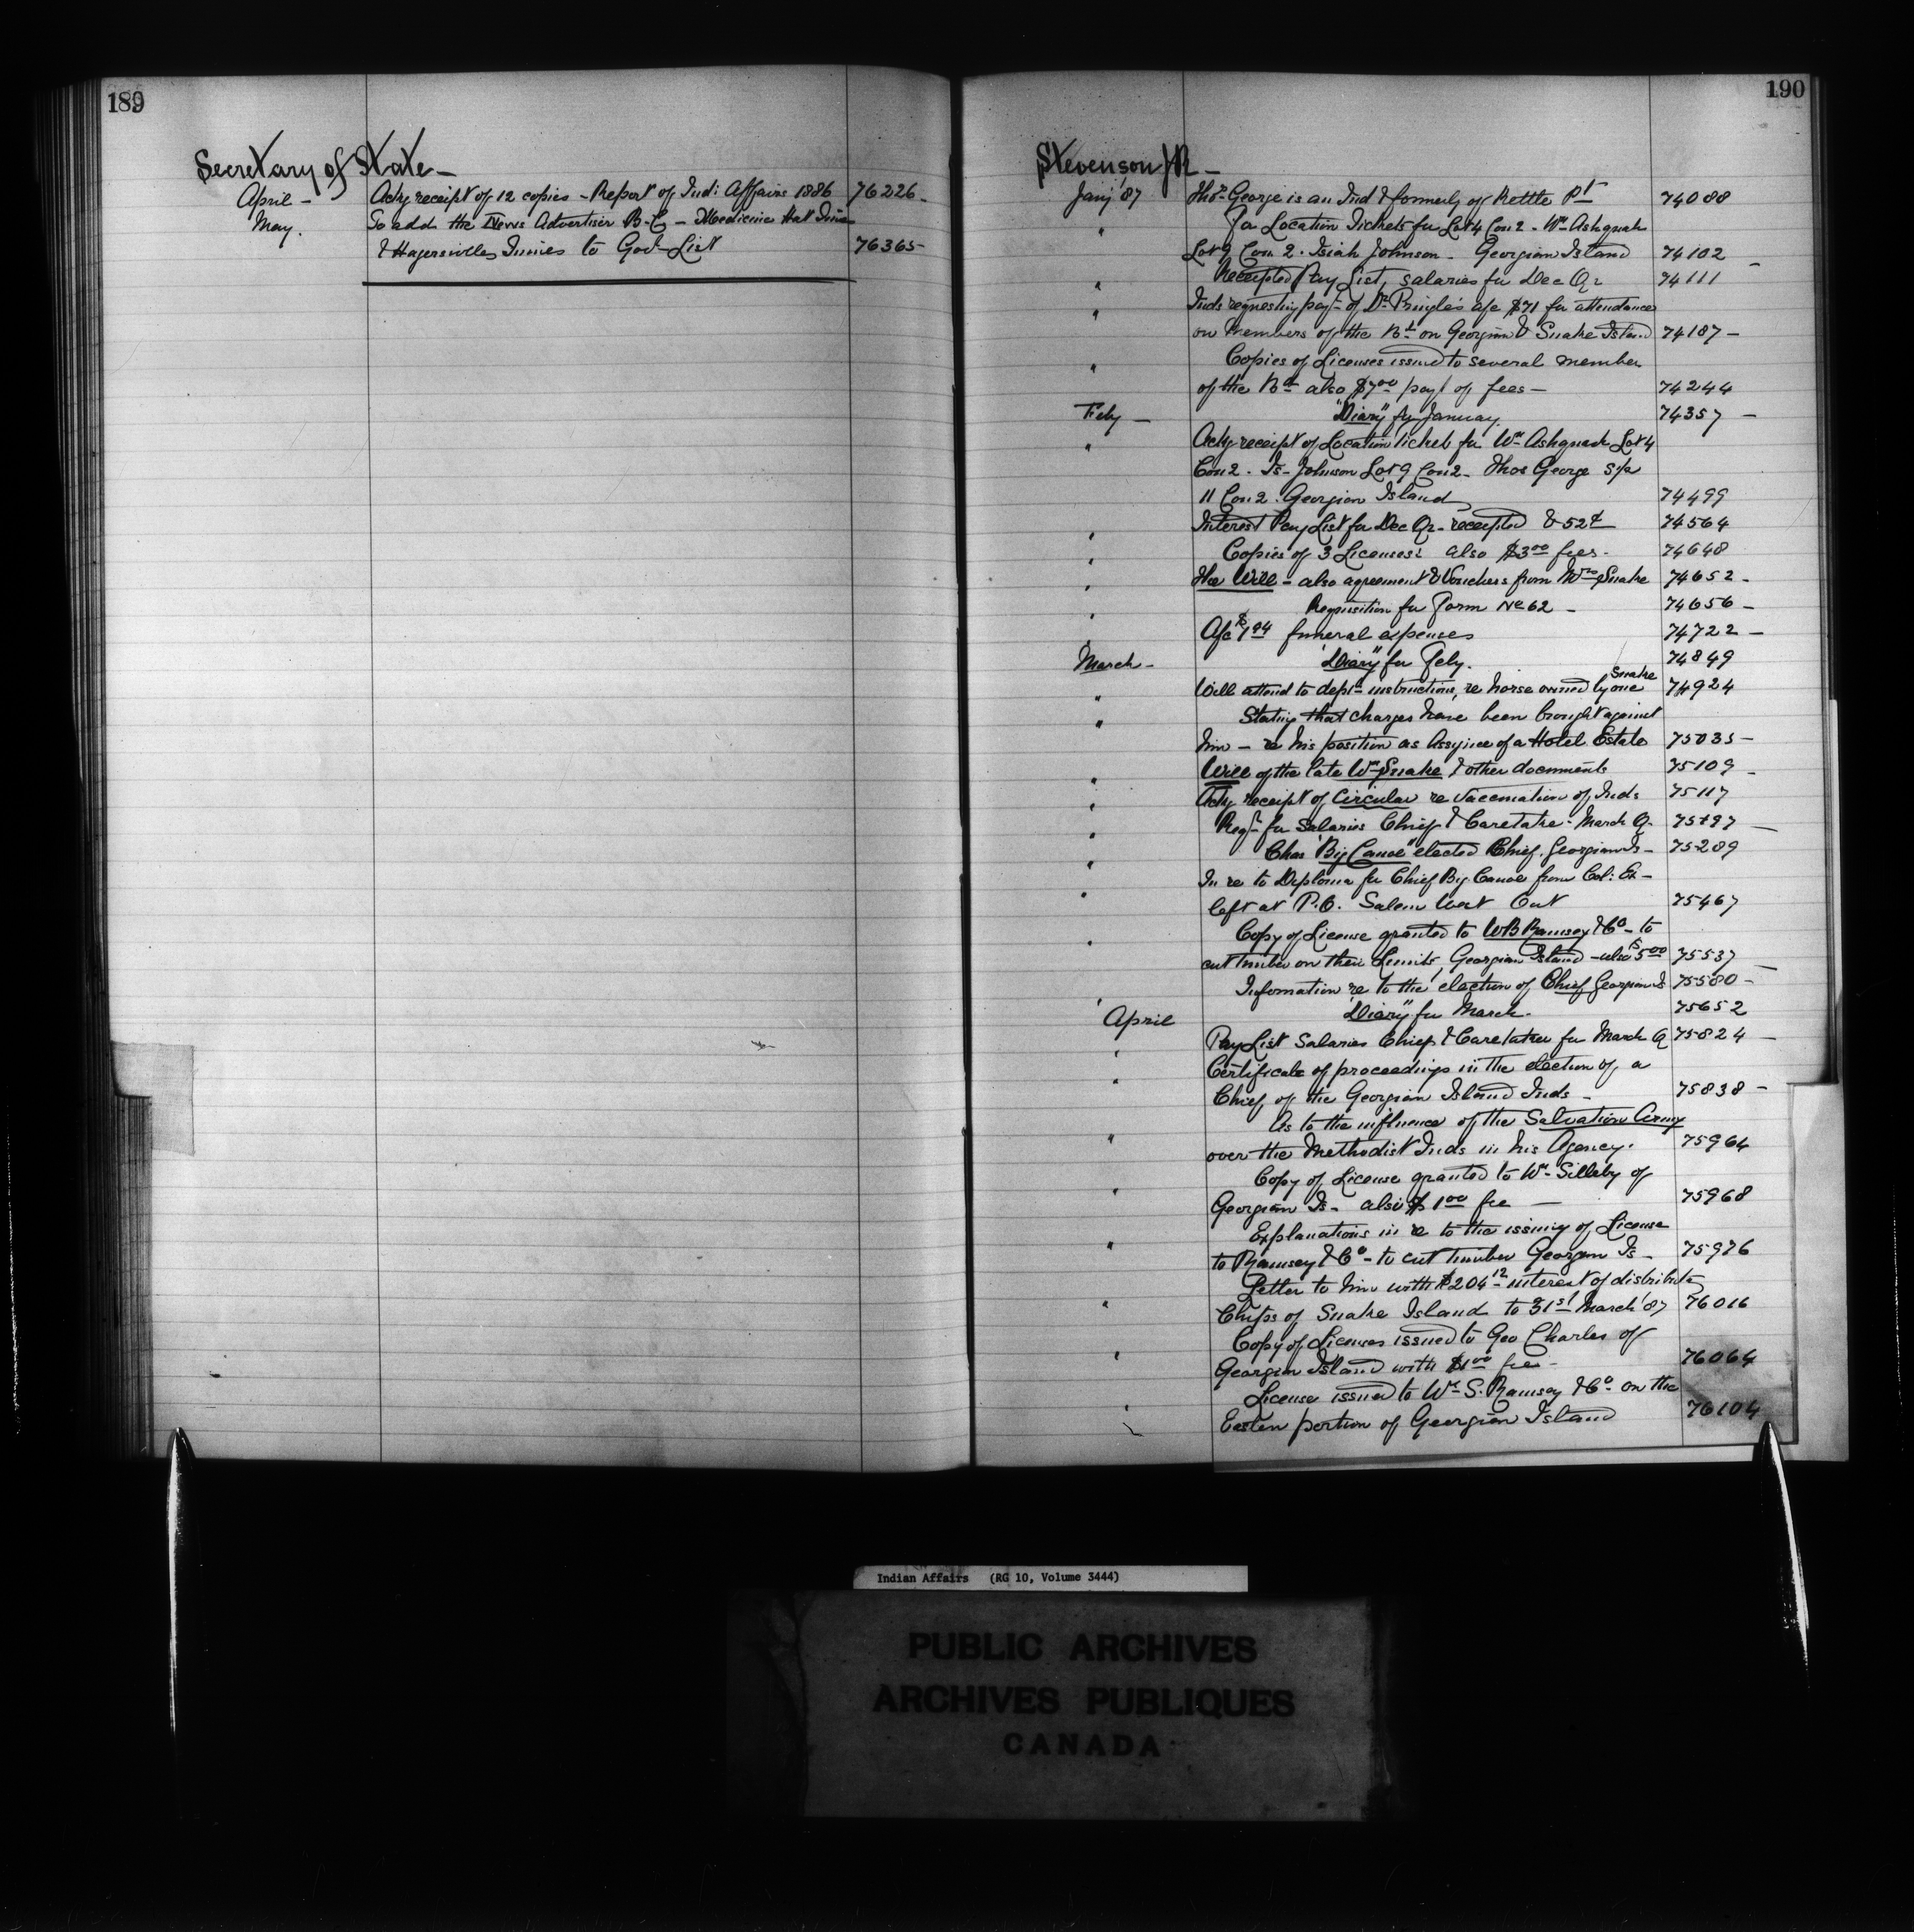 189
Secretary of State —
April — Ackg receipt of 12 copies - Report of Indi Affairs 1886 76226 -
May. To add the News Advertiser B-C - Medicine Hat Times
& Hagersvilles Times to Govt List 76365 -
190
Stevenson J R —
Jany '87 Thos George is an Ind & formerly of Kettle Pt 74088
" For Location Tickets for Lot 4 Con 2 - Wm Ashquah
Lot 9 Con 2. Isiah Johnson - Georgian Island 74102 -
" Receipted Pay List, salaries for Dec Qr 74111
" Inds requesting payt of Dr Pringle's a/c $71 for attendance
on members of the Bd on Georgian & Snake Island 74187 -
" Copies of Licenses issued to several member
of the Bd also $7.00 payt of fees — 74244
Feby — "Diary" for January. 74357 -
" Ackg receipt of Location ticket for Wm Ashquah Lot 4
Con 2 - Is- Johnson Lot 9 Con 2 - Thos George
11 Con 2. Georgian Island 74499
" Interest Pay List for Dec Qr - receipted & 52¢ 74564
" Copies of 3 Licenses: also $3.00 fees - 74648
" The Will - also agreement & Vouchers from Snake 74652 -
" Requisition for Form No 62 - 74656 -
A/c funeral expenses 74722 -
March - "Diary" for Feby. 74849
" Will attend to depts instructions, re horse owned by one Snake 74924
" Stating that charges have been brought against
him - re his position as Assignee of a Hotel Estate 75035 -
" Will of the late Wm Snake & other documents 75109 -
" Ackg receipt of Circular re Vaccination of Inds 75117
" Reqn for Salaries Chief & Caretaker - March Q - 75197 -
" Chas "Big Canoe" elected Chief. Georgian Is - 75289
" In re to Diploma for Chief Big Canoe from Col: Ex -
left at P.O. Salem West Ont 75467
" Copy of License granted to WB Ramsey & Co - to
cut timber on their Limits, Georgian Island - also $5.00 75537 -
" Information re to the election of Chief Georgian Is 75580 -
April "Diary" for March. 75652
" Pay List Salaries Chief & Caretaker for March Q 75824 -
" Certificate of proceedings in the election of a
Chief of the Georgian Island Inds - 75838 -
" As to the influence of the Salvation Army
over the Methodist Inds in his Agency. 75964
" Copy of License granted to Wm Silleby of
Georgian Is - also $1.00 fee — 75968
" Explanations in re to the issuing of License
to Ramsey & Co - to cut timber Georgian Is - 75976
" Letter to him with $204.12 interest of distribute
Chips of Snake Island to 31st March '87 76016
" Copy of Licenses issued to Geo Charles of
Georgian Island with $1.00 fee - 76064
" License issued to Wm S. Ramsey & Co - on the
Eastern portion of Georgian Island 76104
Indian Affairs (RG 10, Volume 3444)
PUBLIC ARCHIVES
ARCHIVES PUBLIQUES
CANADA